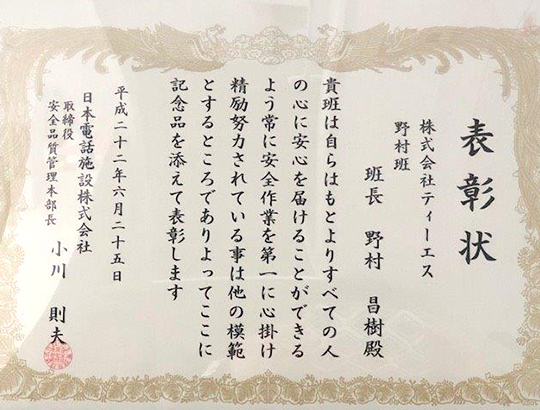 表彰状
株式会社ティーエス
野村班
班長 野村 昌樹殿
貴班は自らはもとよりすべての人
の心に安心を届けることができる
よう常に安全作業を第一に心掛け
精励努力されている事は他の模範
とするところでありよってここに
記念品を添えて表彰します
平成二十二年六月二十五日
日本電話施設株式会社
取締役
安全品質管理本部長 小川 則夫